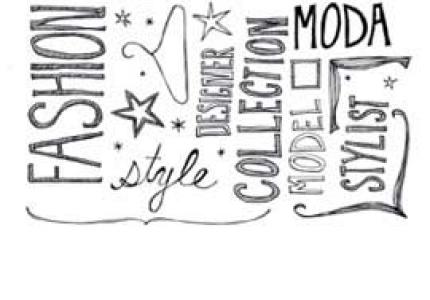 FASHION
style
DESIGNER
COLLECTION
MODA
MODEL
STYLIST